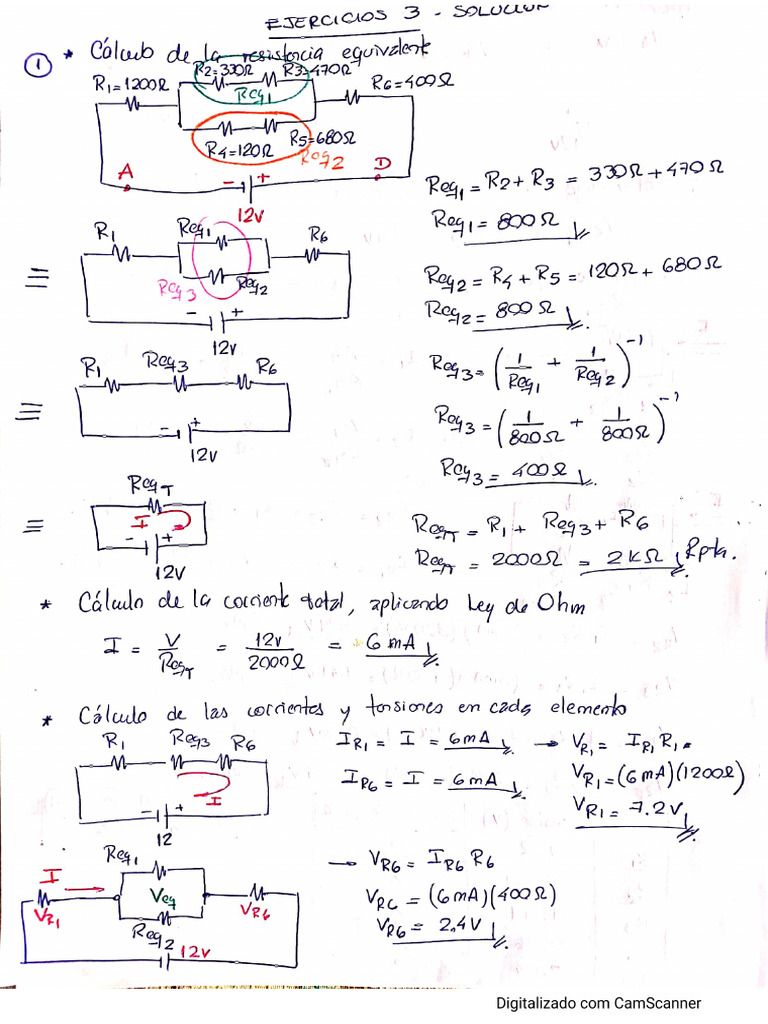 EJERCICIOS 3 - SOLUCION
① * Cálculo de la resistencia equivalente
R1=1200Ω
R2=330Ω R3=470Ω
Req1
R6=400Ω
R4=120Ω
R5=680Ω
Req2
A - + D
12V
Req1 = R2 + R3 = 330Ω + 470Ω
Req1 = 800Ω
≡ R1 Req1 R6
Req3 Req2
- +
12V
Req2 = R4 + R5 = 120Ω + 680Ω
Req2 = 800Ω
≡ R1 Req3 R6
- +
12V
Req3 = (1/Req1 + 1/Req2)^-1
Req3 = (1/800Ω + 1/800Ω)^-1
Req3 = 400Ω
≡ ReqT
I
- +
12V
ReqT = R1 + Req3 + R6
ReqT = 2000Ω = 2kΩ Rpta.
* Cálculo de la corriente total, aplicando Ley de Ohm
I = V/ReqT = 12V/2000Ω = 6mA
* Cálculo de las corrientes y tensiones en cada elemento
R1 Req3 R6
I
+
12
IR1 = I = 6mA → VR1 = IR1 R1
IR6 = I = 6mA
VR1 = (6mA)(1200Ω)
VR1 = 7.2V
I Req1
VR1 Veq VR6
Req2 12V
→ VR6 = IR6 R6
VR6 = (6mA)(400Ω)
VR6 = 2.4V
Digitalizado com CamScanner